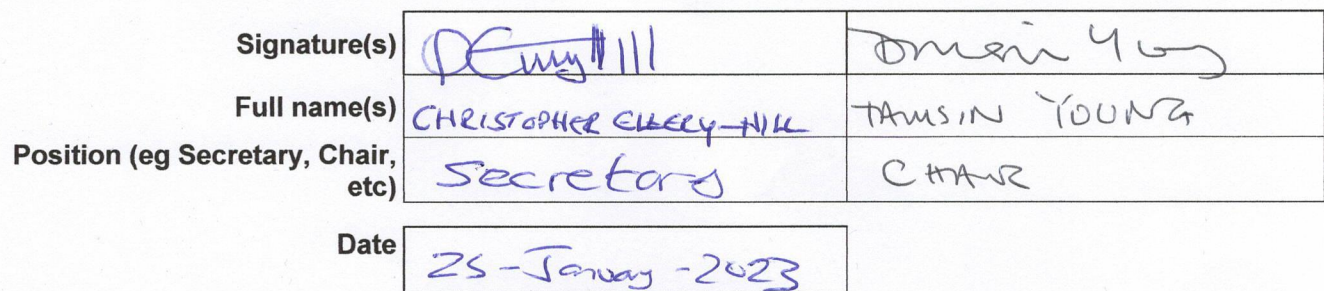 Signature(s)
Full name(s) CHRISTOPHER ELLERY-HILL TAMSIN YOUNG
Position (eg Secretary, Chair,
etc) Secretary CHAIR
Date 25-January-2023